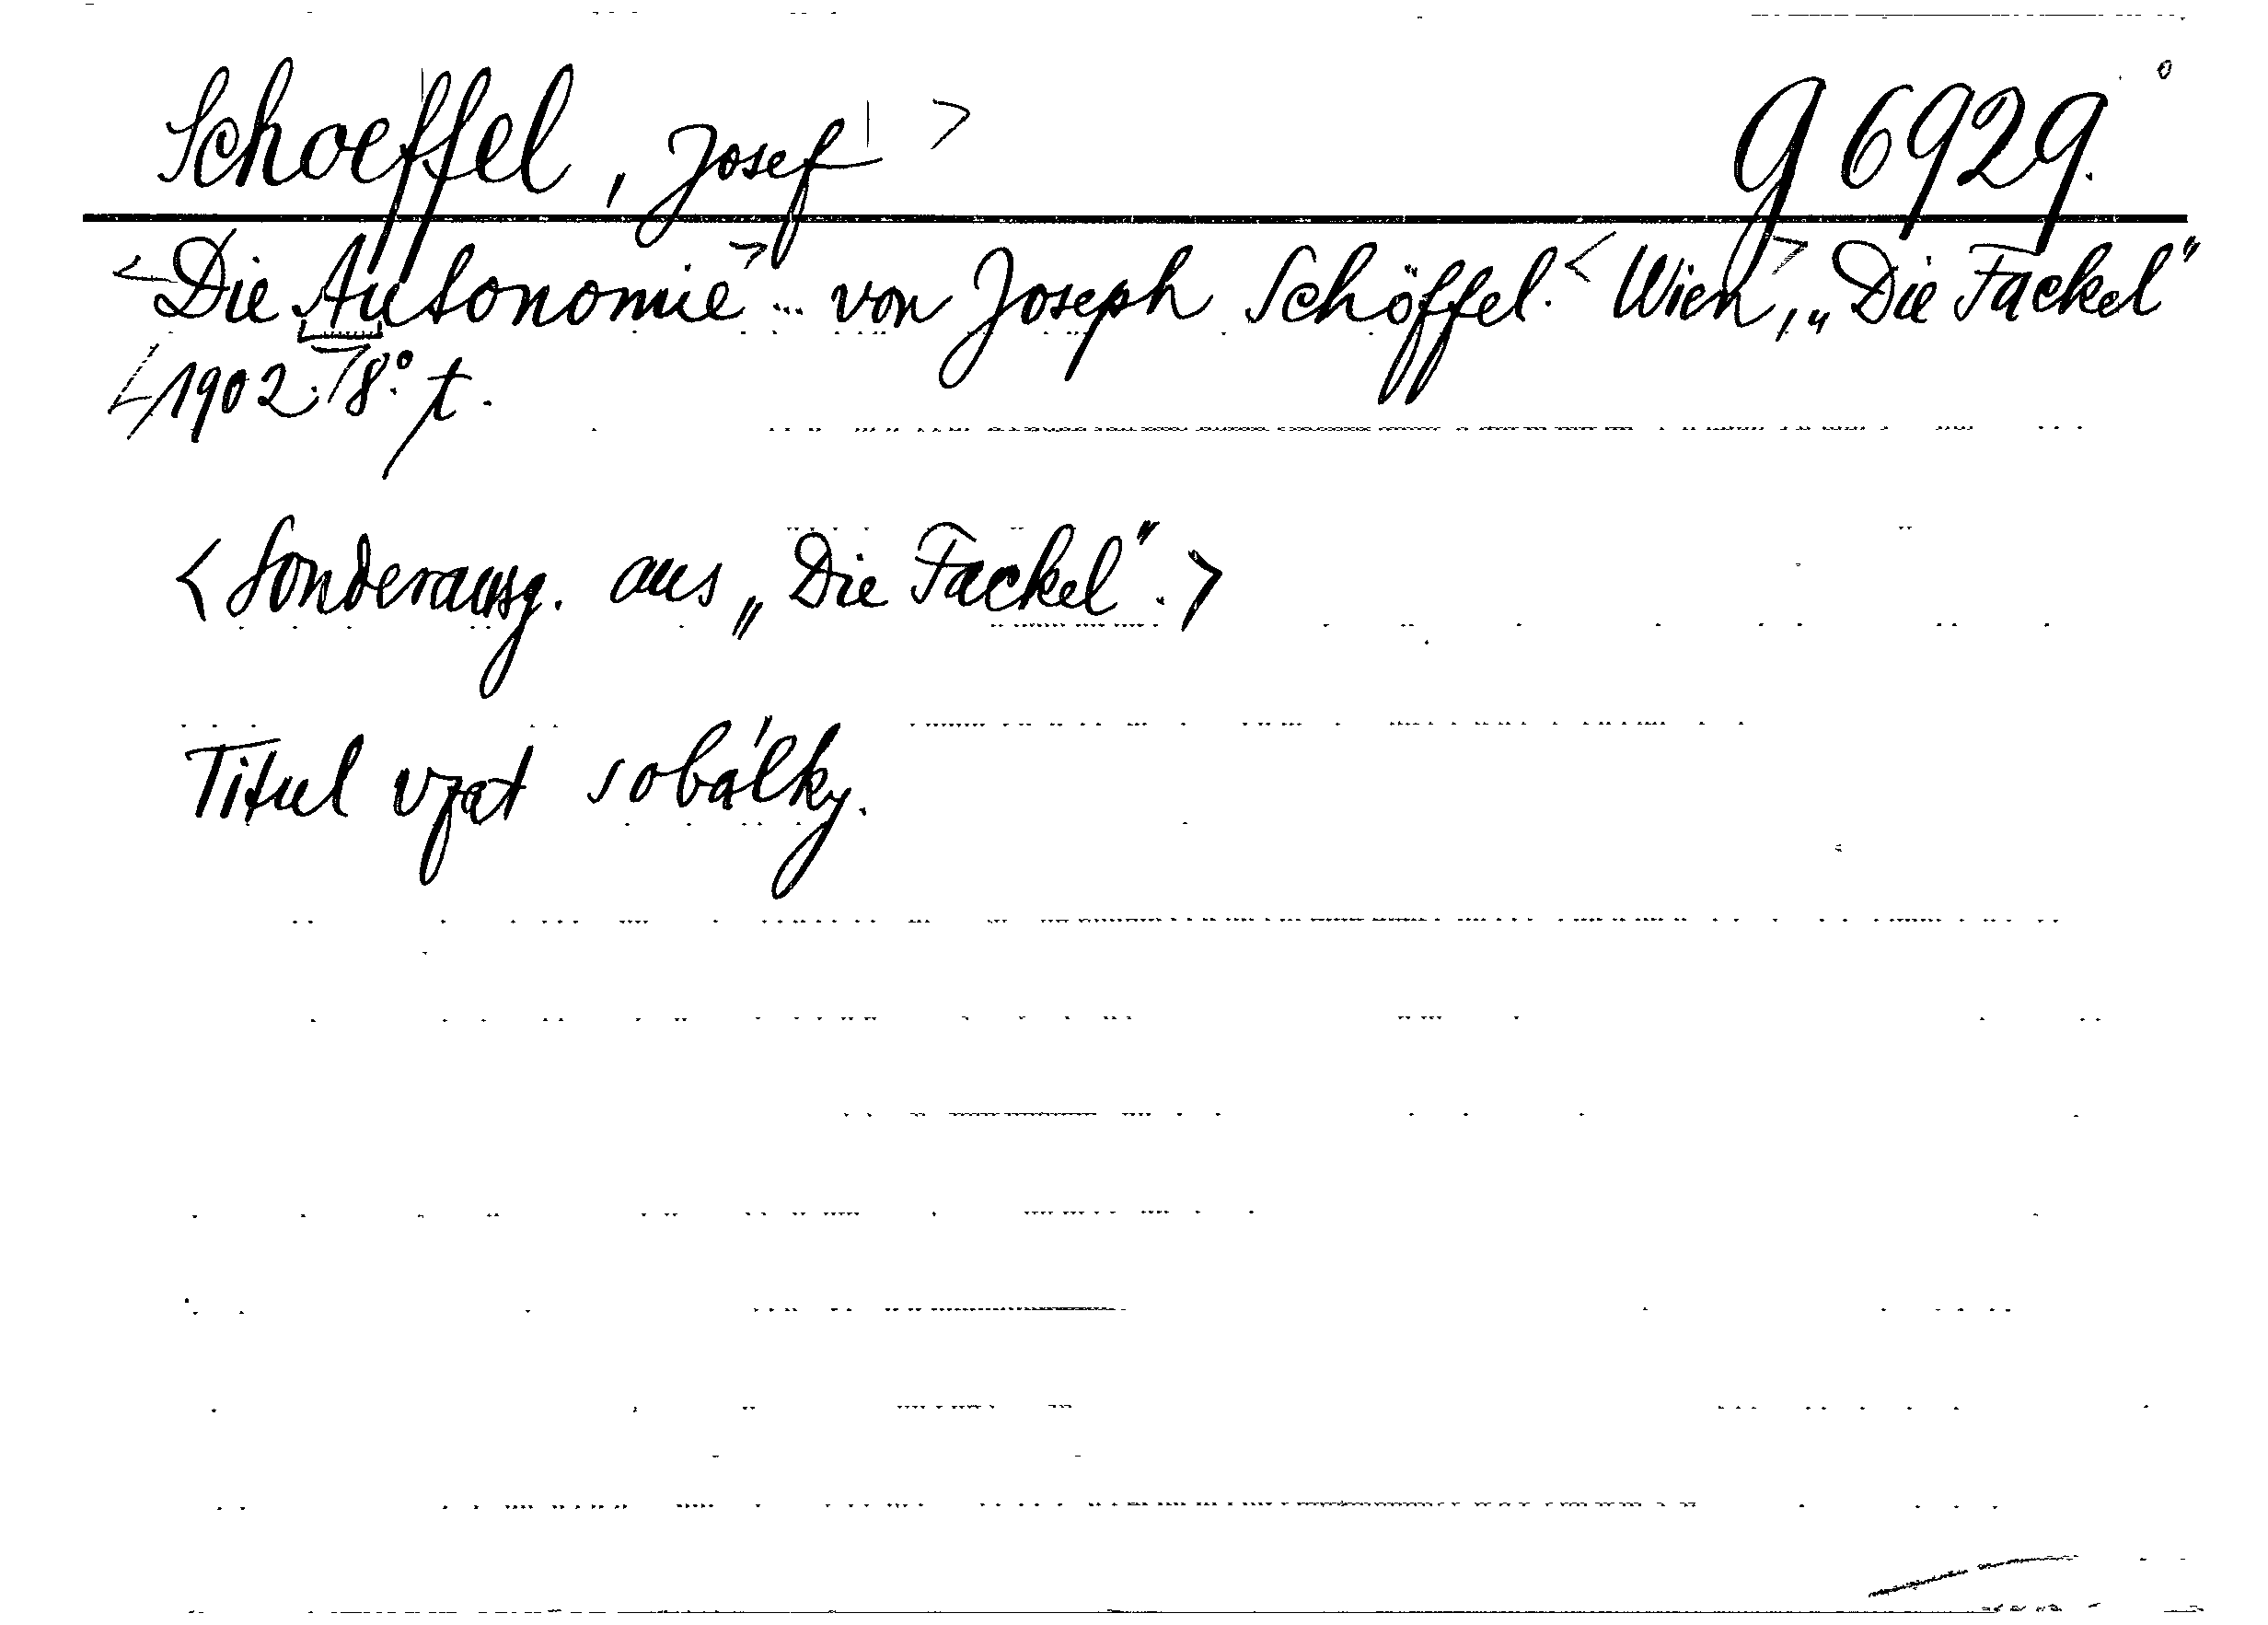 Schoeffel, Josef > g 6929.
<Die Autonomie> ... von Joseph Schöffel. <Wien>, „Die Fackel"
<1902.> 8°. t.
<Sonderausg. aus „Die Fackel".>
Titul vzat s obálky.